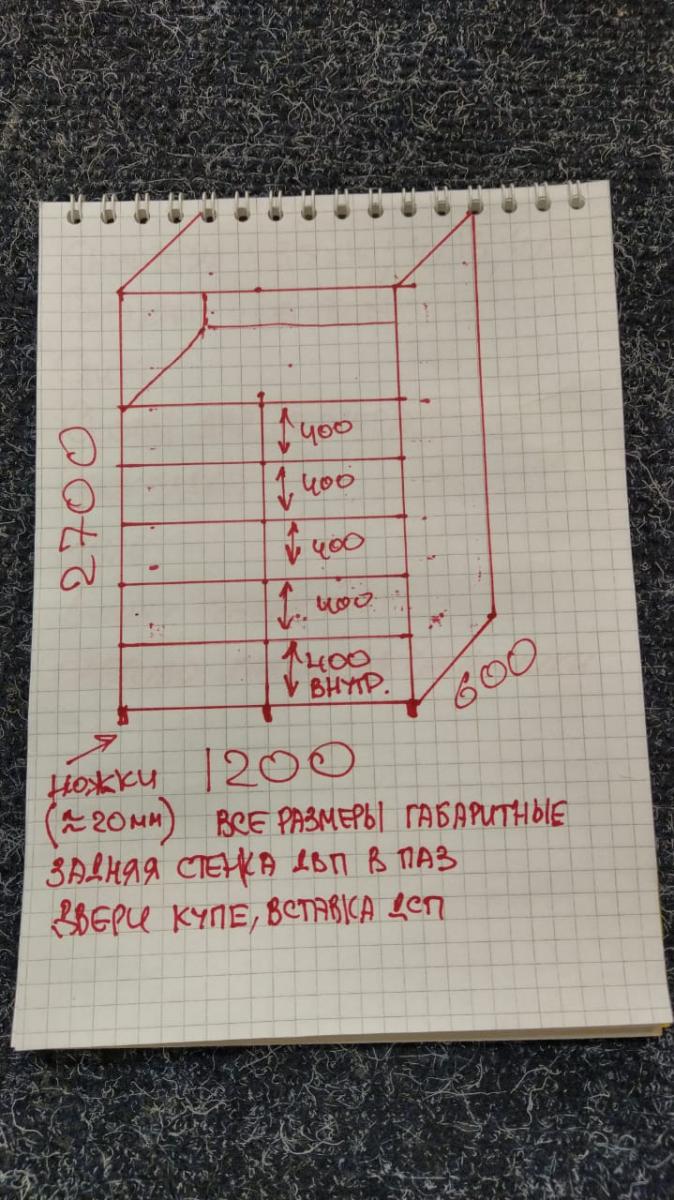 2700
400
400
400
400
400
ВНУТР.
600
НОЖКИ
(≈20мм)
1200
ВСЕ РАЗМЕРЫ ГАБАРИТНЫЕ
ЗАДНЯЯ СТЕНКА ДВП В ПАЗ
ДВЕРИ КУПЕ, ВСТАВКА ДСП